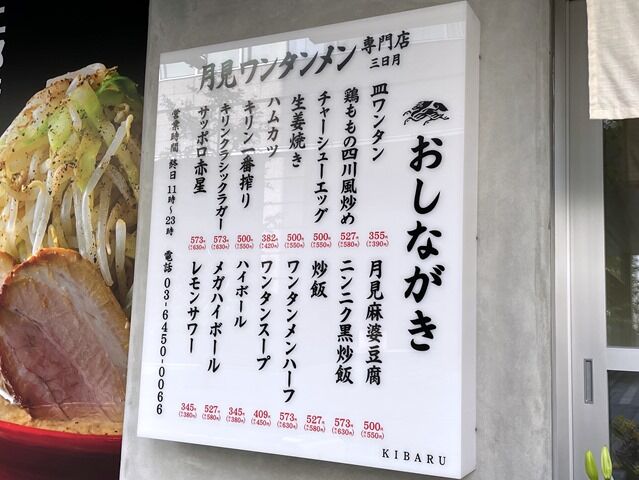 月見ワンタンメン専門店
三日月
おしながき
皿ワンタン 355円(税込390円)
鶏ももの四川風炒め 527円(税込580円)
チャーシューエッグ 500円(税込550円)
生姜焼き 500円(税込550円)
ハムカツ 382円(税込420円)
キリン一番搾り 500円(税込550円)
キリンクラシックラガー 573円(税込630円)
サッポロ赤星 573円(税込630円)
月見麻婆豆腐 500円(税込550円)
ニンニク黒炒飯 573円(税込630円)
炒飯 527円(税込580円)
ワンタンメンハーフ 573円(税込630円)
ワンタンスープ 409円(税込450円)
ハイボール 345円(税込380円)
メガハイボール 527円(税込580円)
レモンサワー 345円(税込380円)
営業時間 終日 11時〜23時 電話 03-6450-0066
KIBARU